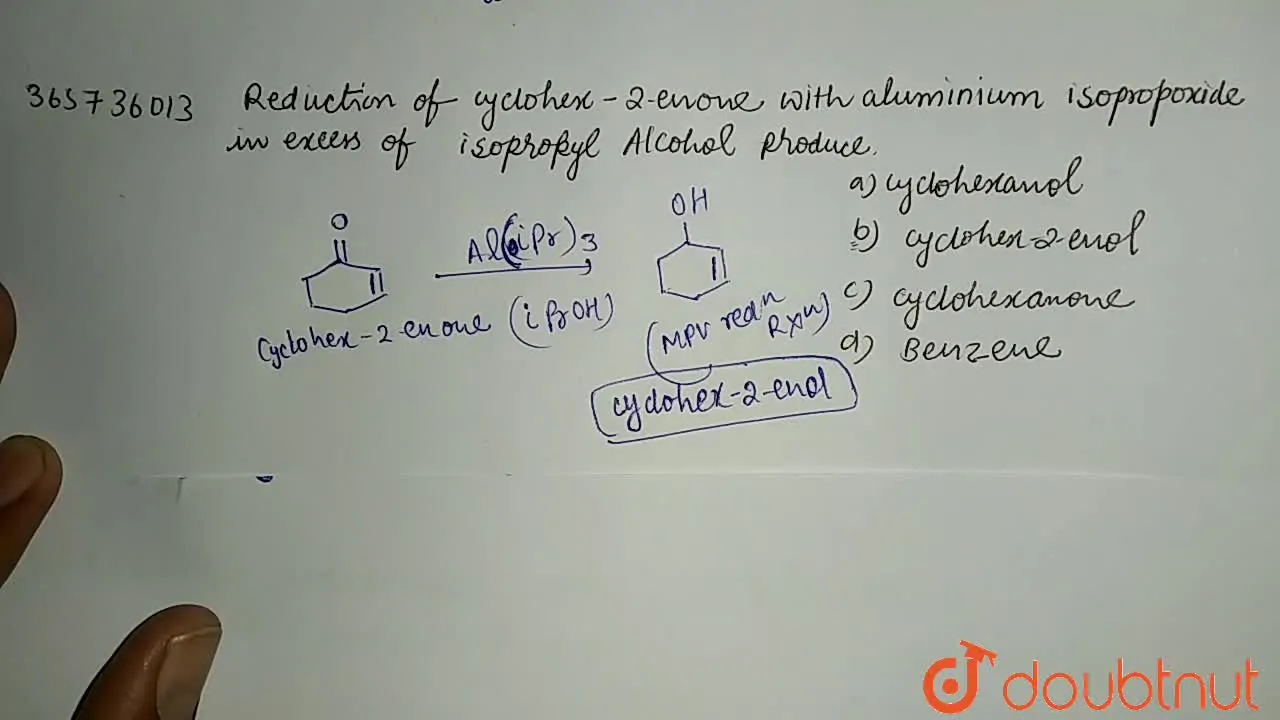 365736013 Reduction of cyclohex-2-enone with aluminium isopropoxide
in excess of isopropyl Alcohol produce.
a) cyclohexanol
b) cyclohex-2-enol
c) cyclohexanone
d) Benzene
O
Al(iPr)3
(iPrOH)
Cyclohex-2-enone
OH
(MPV redn
Rxn)
cyclohex-2-enol
doubtnut